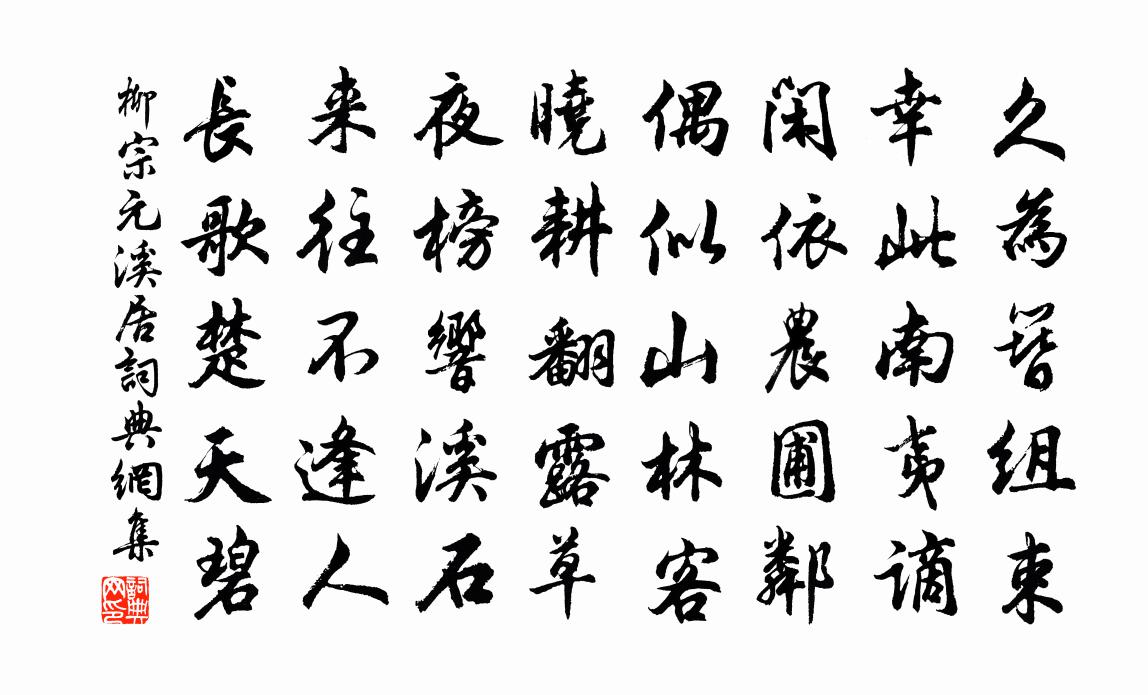 久為簪組束
幸此南夷謫
閑依農圃鄰
偶似山林客
曉耕翻露草
夜榜響溪石
来往不逢人
長歌楚天碧
柳宗元溪居詞典網集
詞典网印